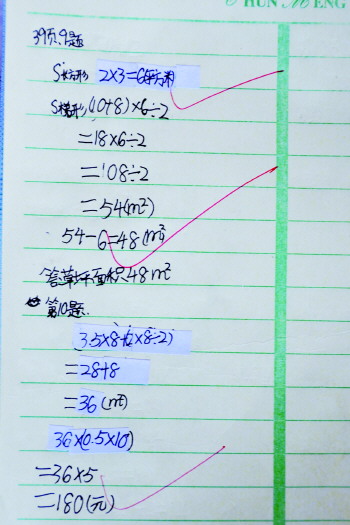 HUN MENG
39页9题
S长方形 2×3=6(平方米)
S梯形(10+8)×6÷2
=18×6÷2
=108÷2
=54(m²)
54-6=48(m²)
答草坪面积48m²
第10题.
3.5×8+(2×8÷2)
=28+8
=36(m²)
36×(0.5×10)
=36×5
=180(元)